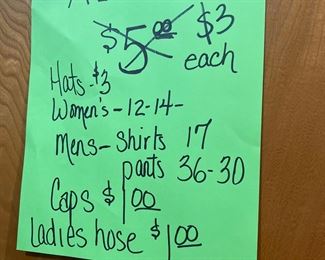 $5.00 $3
each
Hats-$3
Women's-12-14-
Mens-Shirts 17
pants 36-30
Caps $1.00
Ladies hose $1.00